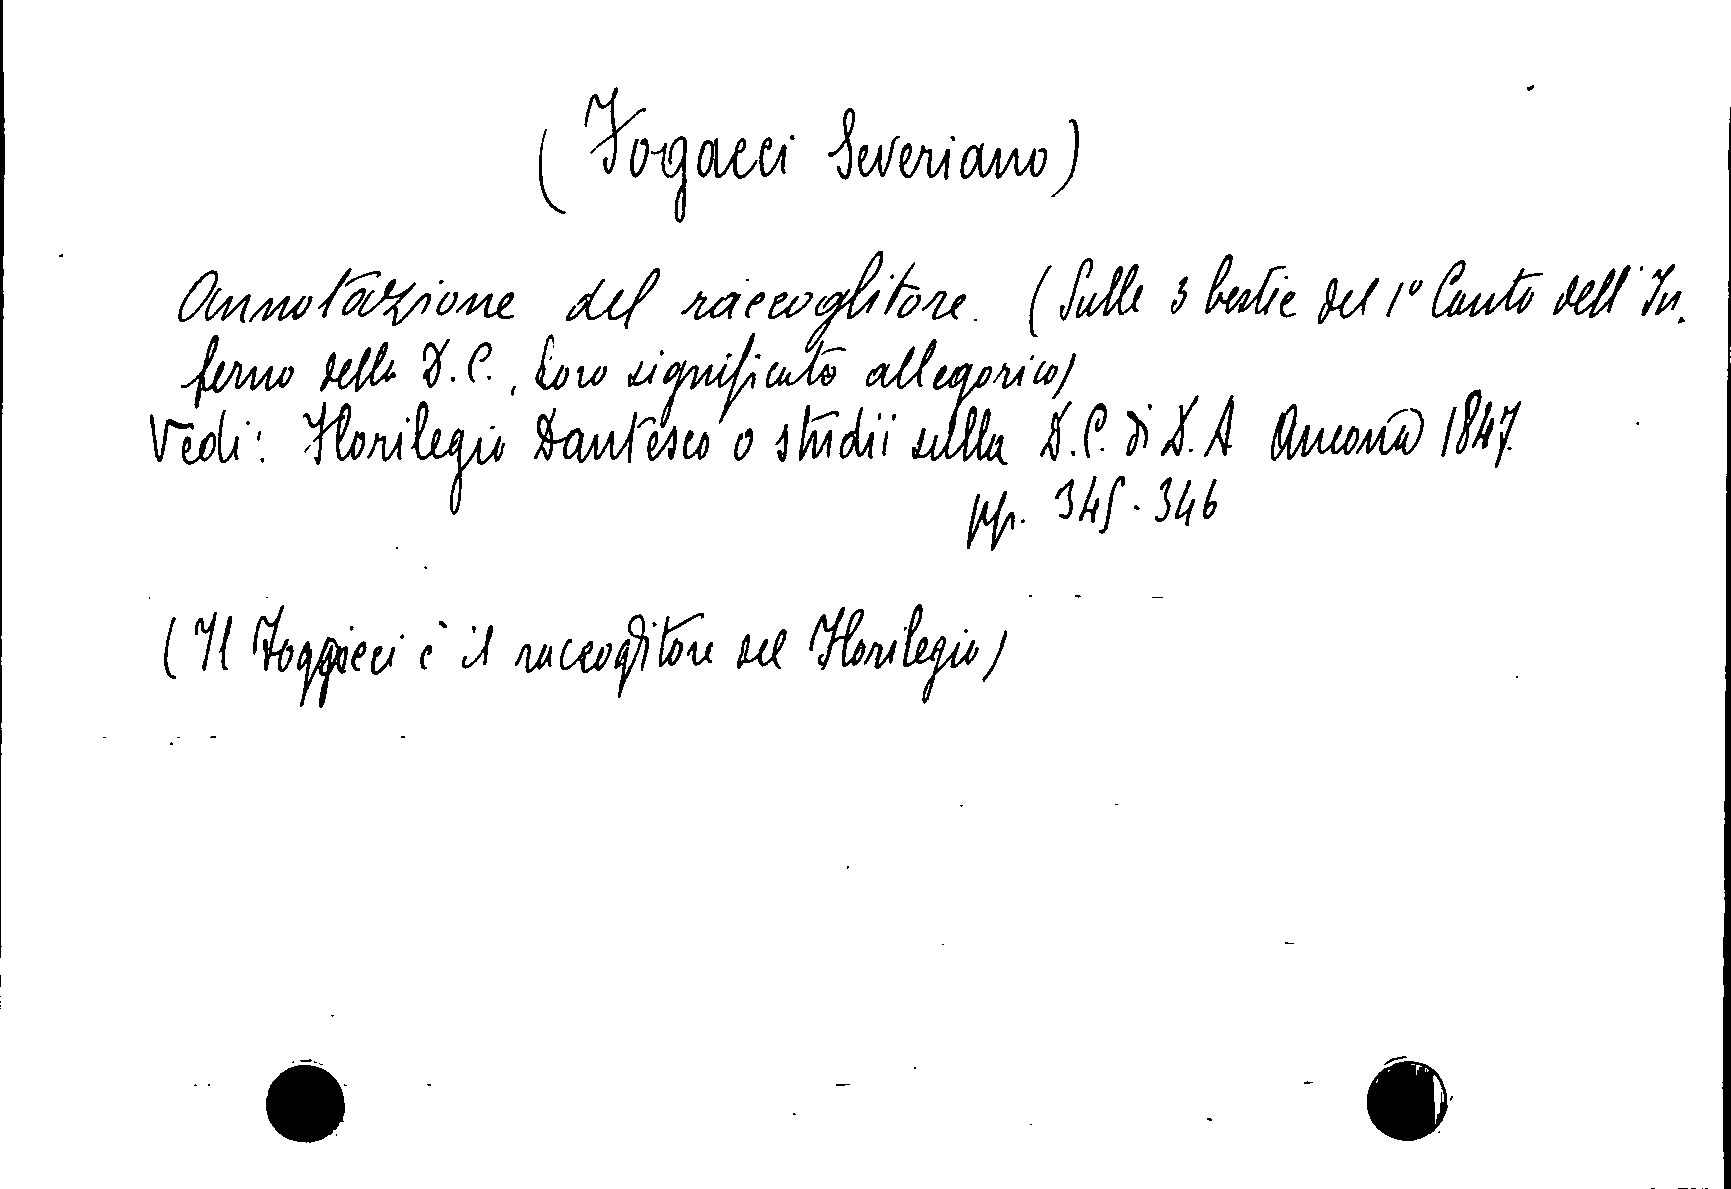 (Fogacci Severiano)
Annotazione del raccoglitore. (Sulle 3 bestie del 1° Canto dell'In.
ferno della D.C., loro significato allegorico)
Vedi: Florilegio Dantesco o studii sulla D.C. di D.A Ancona 1847.
pp. 345-346
(Il Foggacci è il raccoglitore del Florilegio)